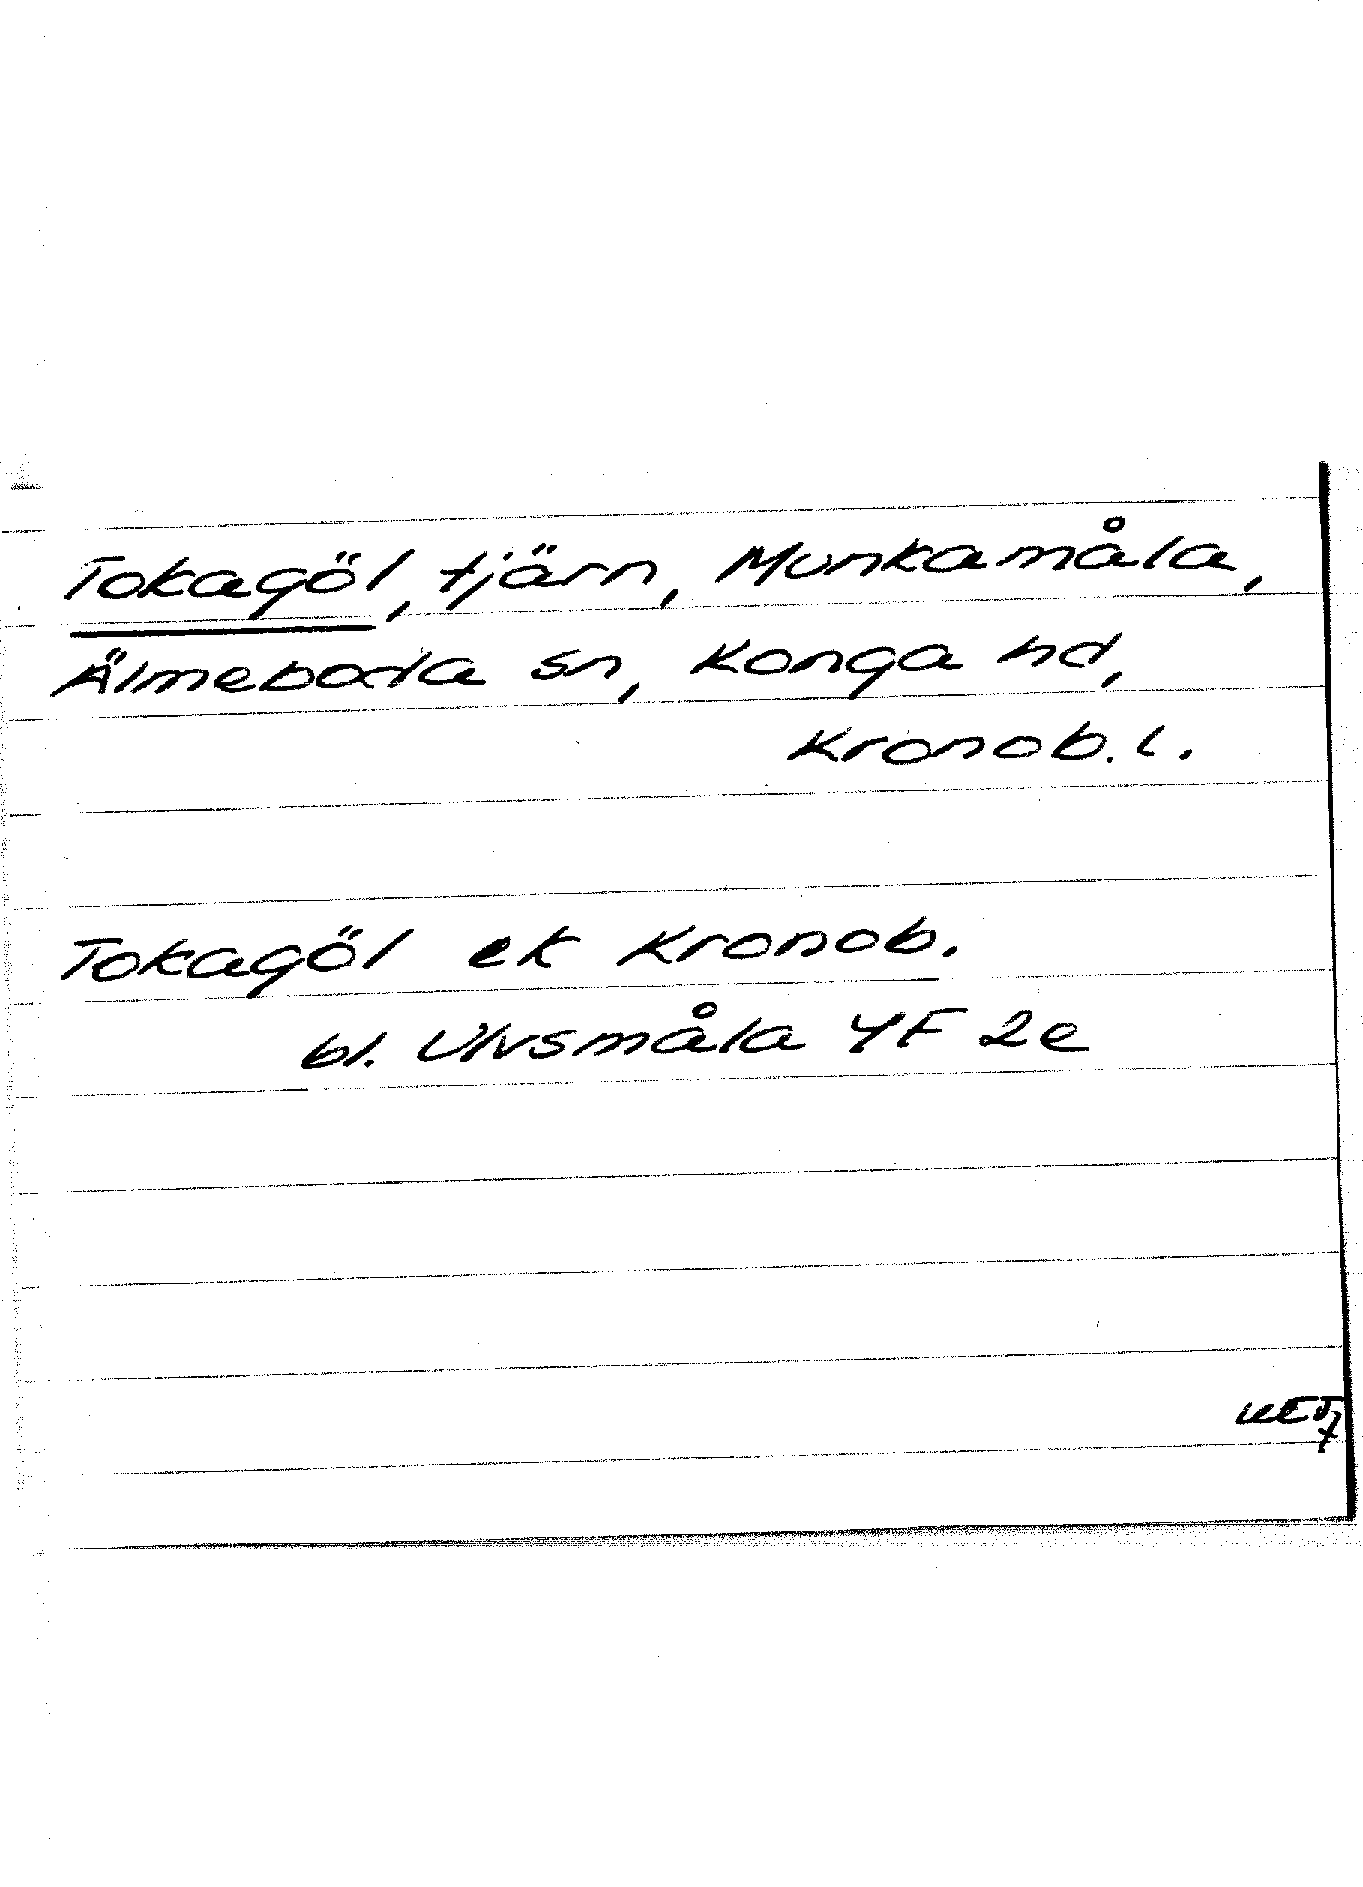 Tokagöl, tjärn, Munkamåla,
Älmeboda sn, Konga hd,
Kronob. l.
Tokagöl ek Kronob.
bl. Ulvsmåla 4F 2e